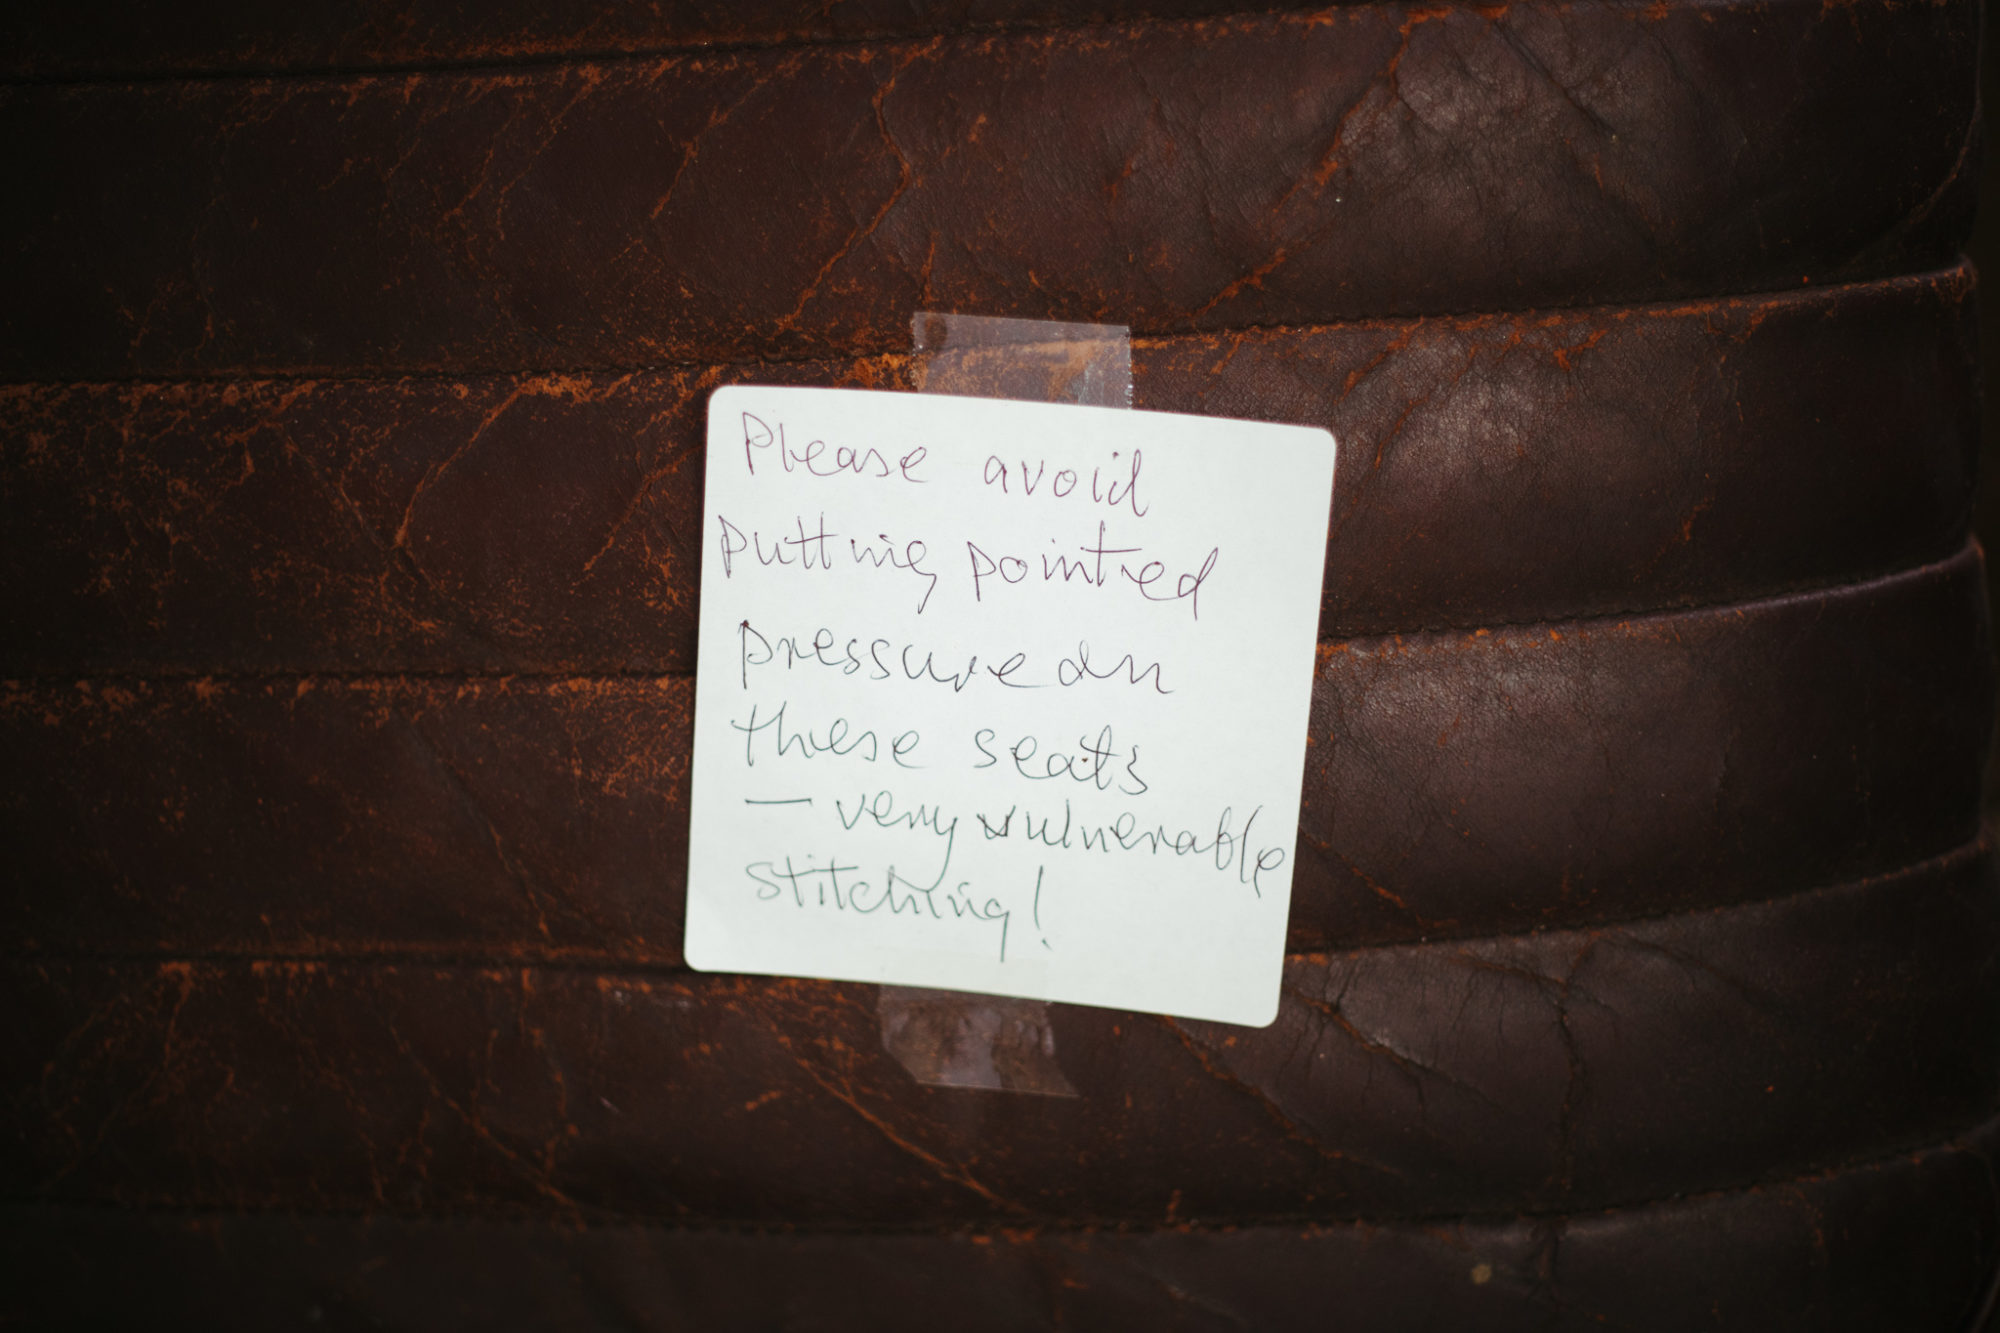 Please avoid
putting pointed
pressure on
these seats
— very vulnerable
stitching!